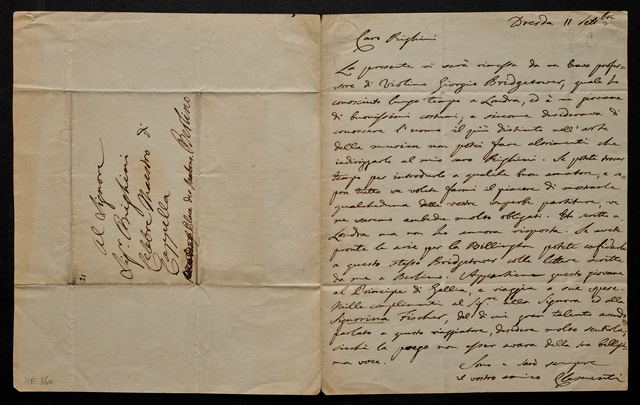 Al Signore
Sigr. Righini
Celebre Maestro di
Cappella
Berlino
21
UE 360
Dresda 11 Settbre
Caro Righini
La presente vi sarà rimessa da un bravo profes-
sore di Violino Giorgio Bridgetower, quale ho
conosciuto lungo tempo a Londra, ed è un giovane
di buonissimi costumi, e siccome desiderava di
conoscere l'uomo il più distinto nell'arte
della musica non potei fare altrimenti che
indirizzarlo al mio caro Righini. Se potete trovar
tempo per introdurlo a qualche buon amatore, e so-
pra tutto se volete farmi il piacere di mostrarle
qualcheduna delle vostre superbe partiture, ve
ne saremo ambidue molto obligati. Ho scritto a
Londra ma non ho ancora risposta. Se avete
pronte le arie per la Billington potete confidarle
a questo stesso Bridgetower colle lettere scritte
da me a Berlino. Appartiene questo giovane
al Principe di Gallia, e viaggia a sue spese.
Mille complimenti al Sigre. alla Signora ed alla
Signorina Fischer, del di cui gran talento avendo
parlato a questo viaggiatore, desidera molto sentirla
sicchè la prego non esser avara della sua bellissi-
ma voce.
Sono e sarò sempre
il vostro amico Clementi